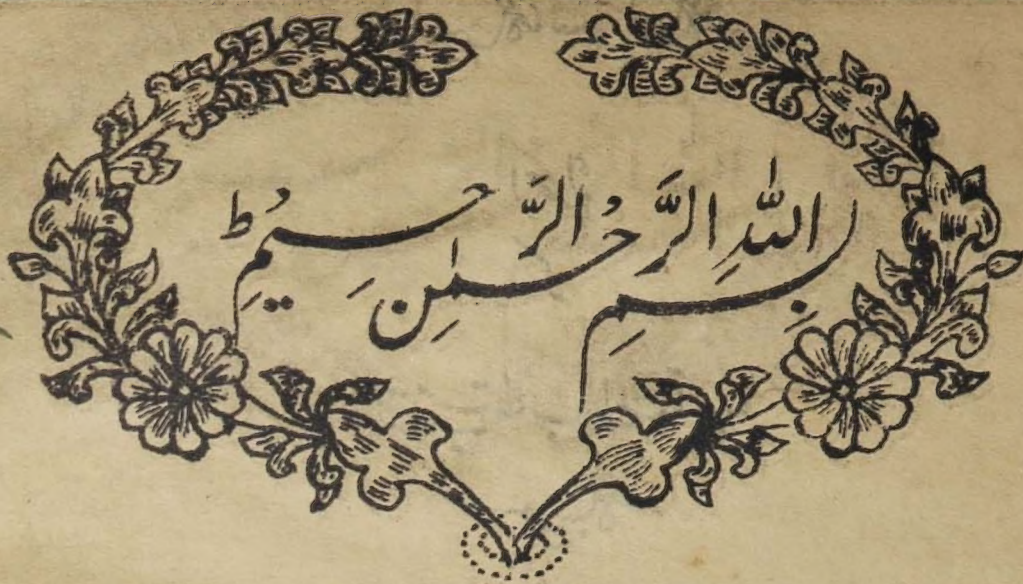 بِسْمِ اللّٰهِ الرَّحْمٰنِ الرَّحِیْمِ ط